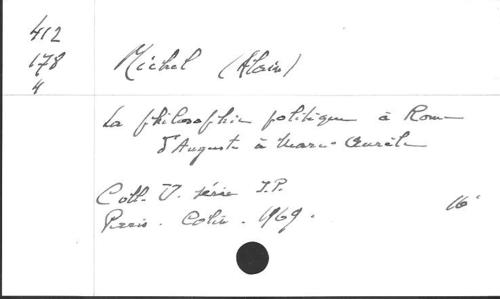 412
178
4
Michel (Alain)
La philosophie politique à Rome
d'Auguste à Marc-Aurèle
Coll. U. série I.P.
Paris. Colin. 1969.
16°